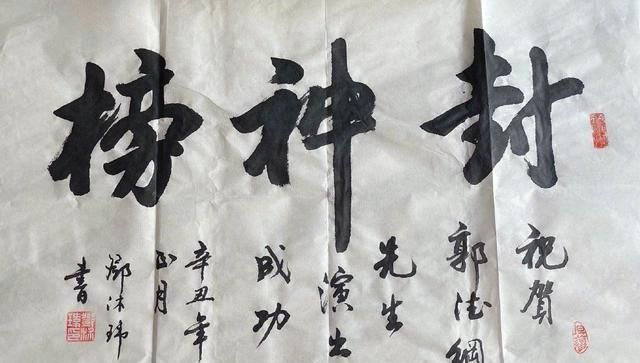 封神榜
祝賀
郭德綱
先生
演出
成功
辛丑年
正月
鄧沐瑋
書